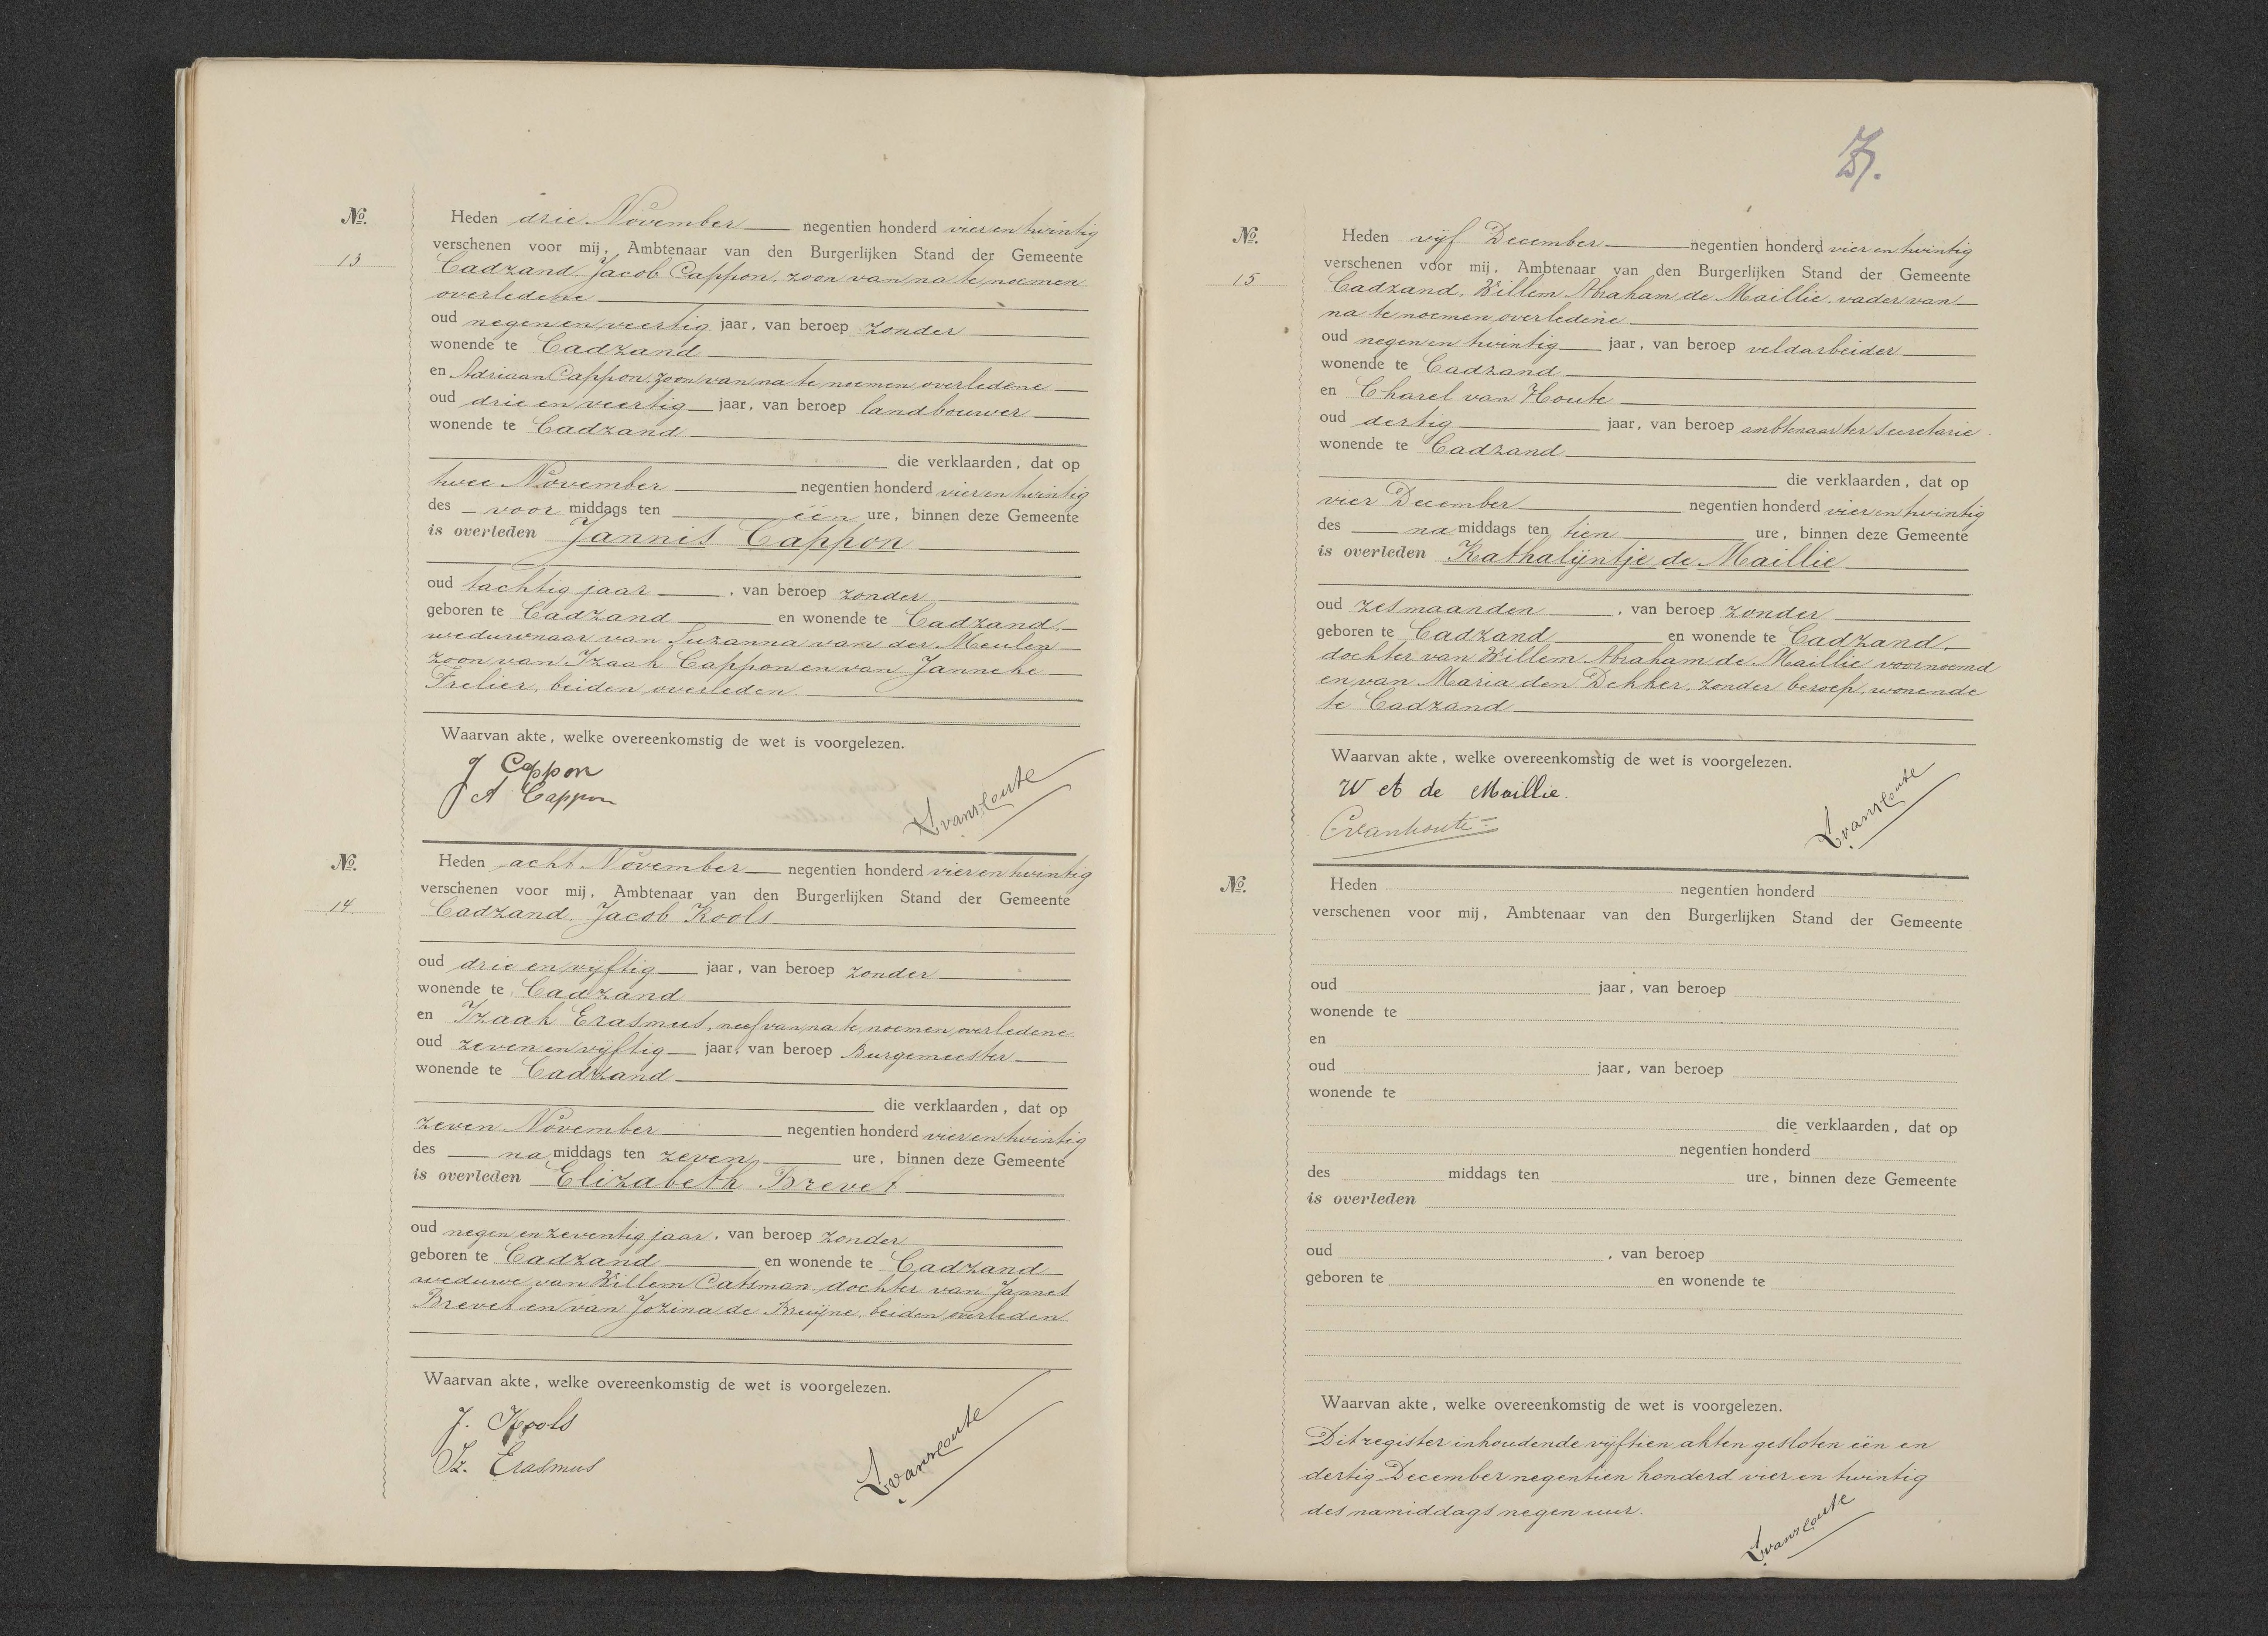 No.
13
Heden drie November negentien honderd vier en twintig
verschenen voor mij, Ambtenaar van den Burgerlijken Stand der Gemeente
Cadzand. Jacob Cappon, zoon van na te noemen
overledene
oud negen en veertig jaar, van beroep zonder
wonende te Cadzand
en Adriaan Cappon, zoon van na te noemen overledene
oud drie en veertig jaar, van beroep landbouwer
wonende te Cadzand
die verklaarden, dat op
twee November negentien honderd vier en twintig
des voor middags ten één ure, binnen deze Gemeente
is overleden Jannis Cappon
oud tachtig jaar, van beroep zonder
geboren te Cadzand en wonende te Cadzand.
weduwnaar van Suzanna van der Meulen
zoon van Izaak Cappon en van Janneke
Frelier, beiden overleden.
Waarvan akte, welke overeenkomstig de wet is voorgelezen.
J Cappon
A Cappon
No.
14.
Heden acht November negentien honderd vier en twintig
verschenen voor mij, Ambtenaar van den Burgerlijken Stand der Gemeente
Cadzand. Jacob Kools
oud drie en vijftig jaar, van beroep zonder
wonende te Cadzand
en Izaak Erasmus, neef van na te noemen overledene
oud zeven en vijftig jaar, van beroep Burgemeester
wonende te Cadzand
die verklaarden, dat op
zeven November negentien honderd vier en twintig
des na middags ten zeven ure, binnen deze Gemeente
is overleden Elizabeth Brevet
oud negen en zeventig jaar, van beroep zonder
geboren te Cadzand en wonende te Cadzand
weduwe van Willem Catsman dochter van Jannes
Brevet en van Jozina de Bruijne, beiden overleden.
Waarvan akte, welke overeenkomstig de wet is voorgelezen.
J. Kools
Iz. Erasmus
No.
15
Heden vijf December negentien honderd vier en twintig
verschenen voor mij, Ambtenaar van den Burgerlijken Stand der Gemeente
Cadzand, Willem Abraham de Maillie, vader van
na te noemen overledene
oud negen en twintig jaar, van beroep veldarbeider
wonende te Cadzand
en Charel van Houte
oud dertig jaar, van beroep ambtenaar ter secretarie.
wonende te Cadzand
die verklaarden, dat op
vier December negentien honderd vier en twintig
des na middags ten tien ure, binnen deze Gemeente
is overleden Kathalijntje de Maillie
oud zes maanden, van beroep zonder
geboren te Cadzand en wonende te Cadzand,
dochter van Willem Abraham de Maillie voornoemd
en van Maria den Dekker, zonder beroep, wonende
te Cadzand
Waarvan akte, welke overeenkomstig de wet is voorgelezen.
W A de Maillie.
C vanhoute
No.
Heden negentien honderd
verschenen voor mij, Ambtenaar van den Burgerlijken Stand der Gemeente
oud jaar, van beroep
wonende te
en
oud jaar, van beroep
wonende te
die verklaarden, dat op
negentien honderd
des middags ten ure, binnen deze Gemeente
is overleden
oud , van beroep
geboren te en wonende te
Waarvan akte, welke overeenkomstig de wet is voorgelezen.
Dit register inhoudende vijftien akten gesloten één en
dertig December negentien honderd vier en twintig
des namiddags negen uur.